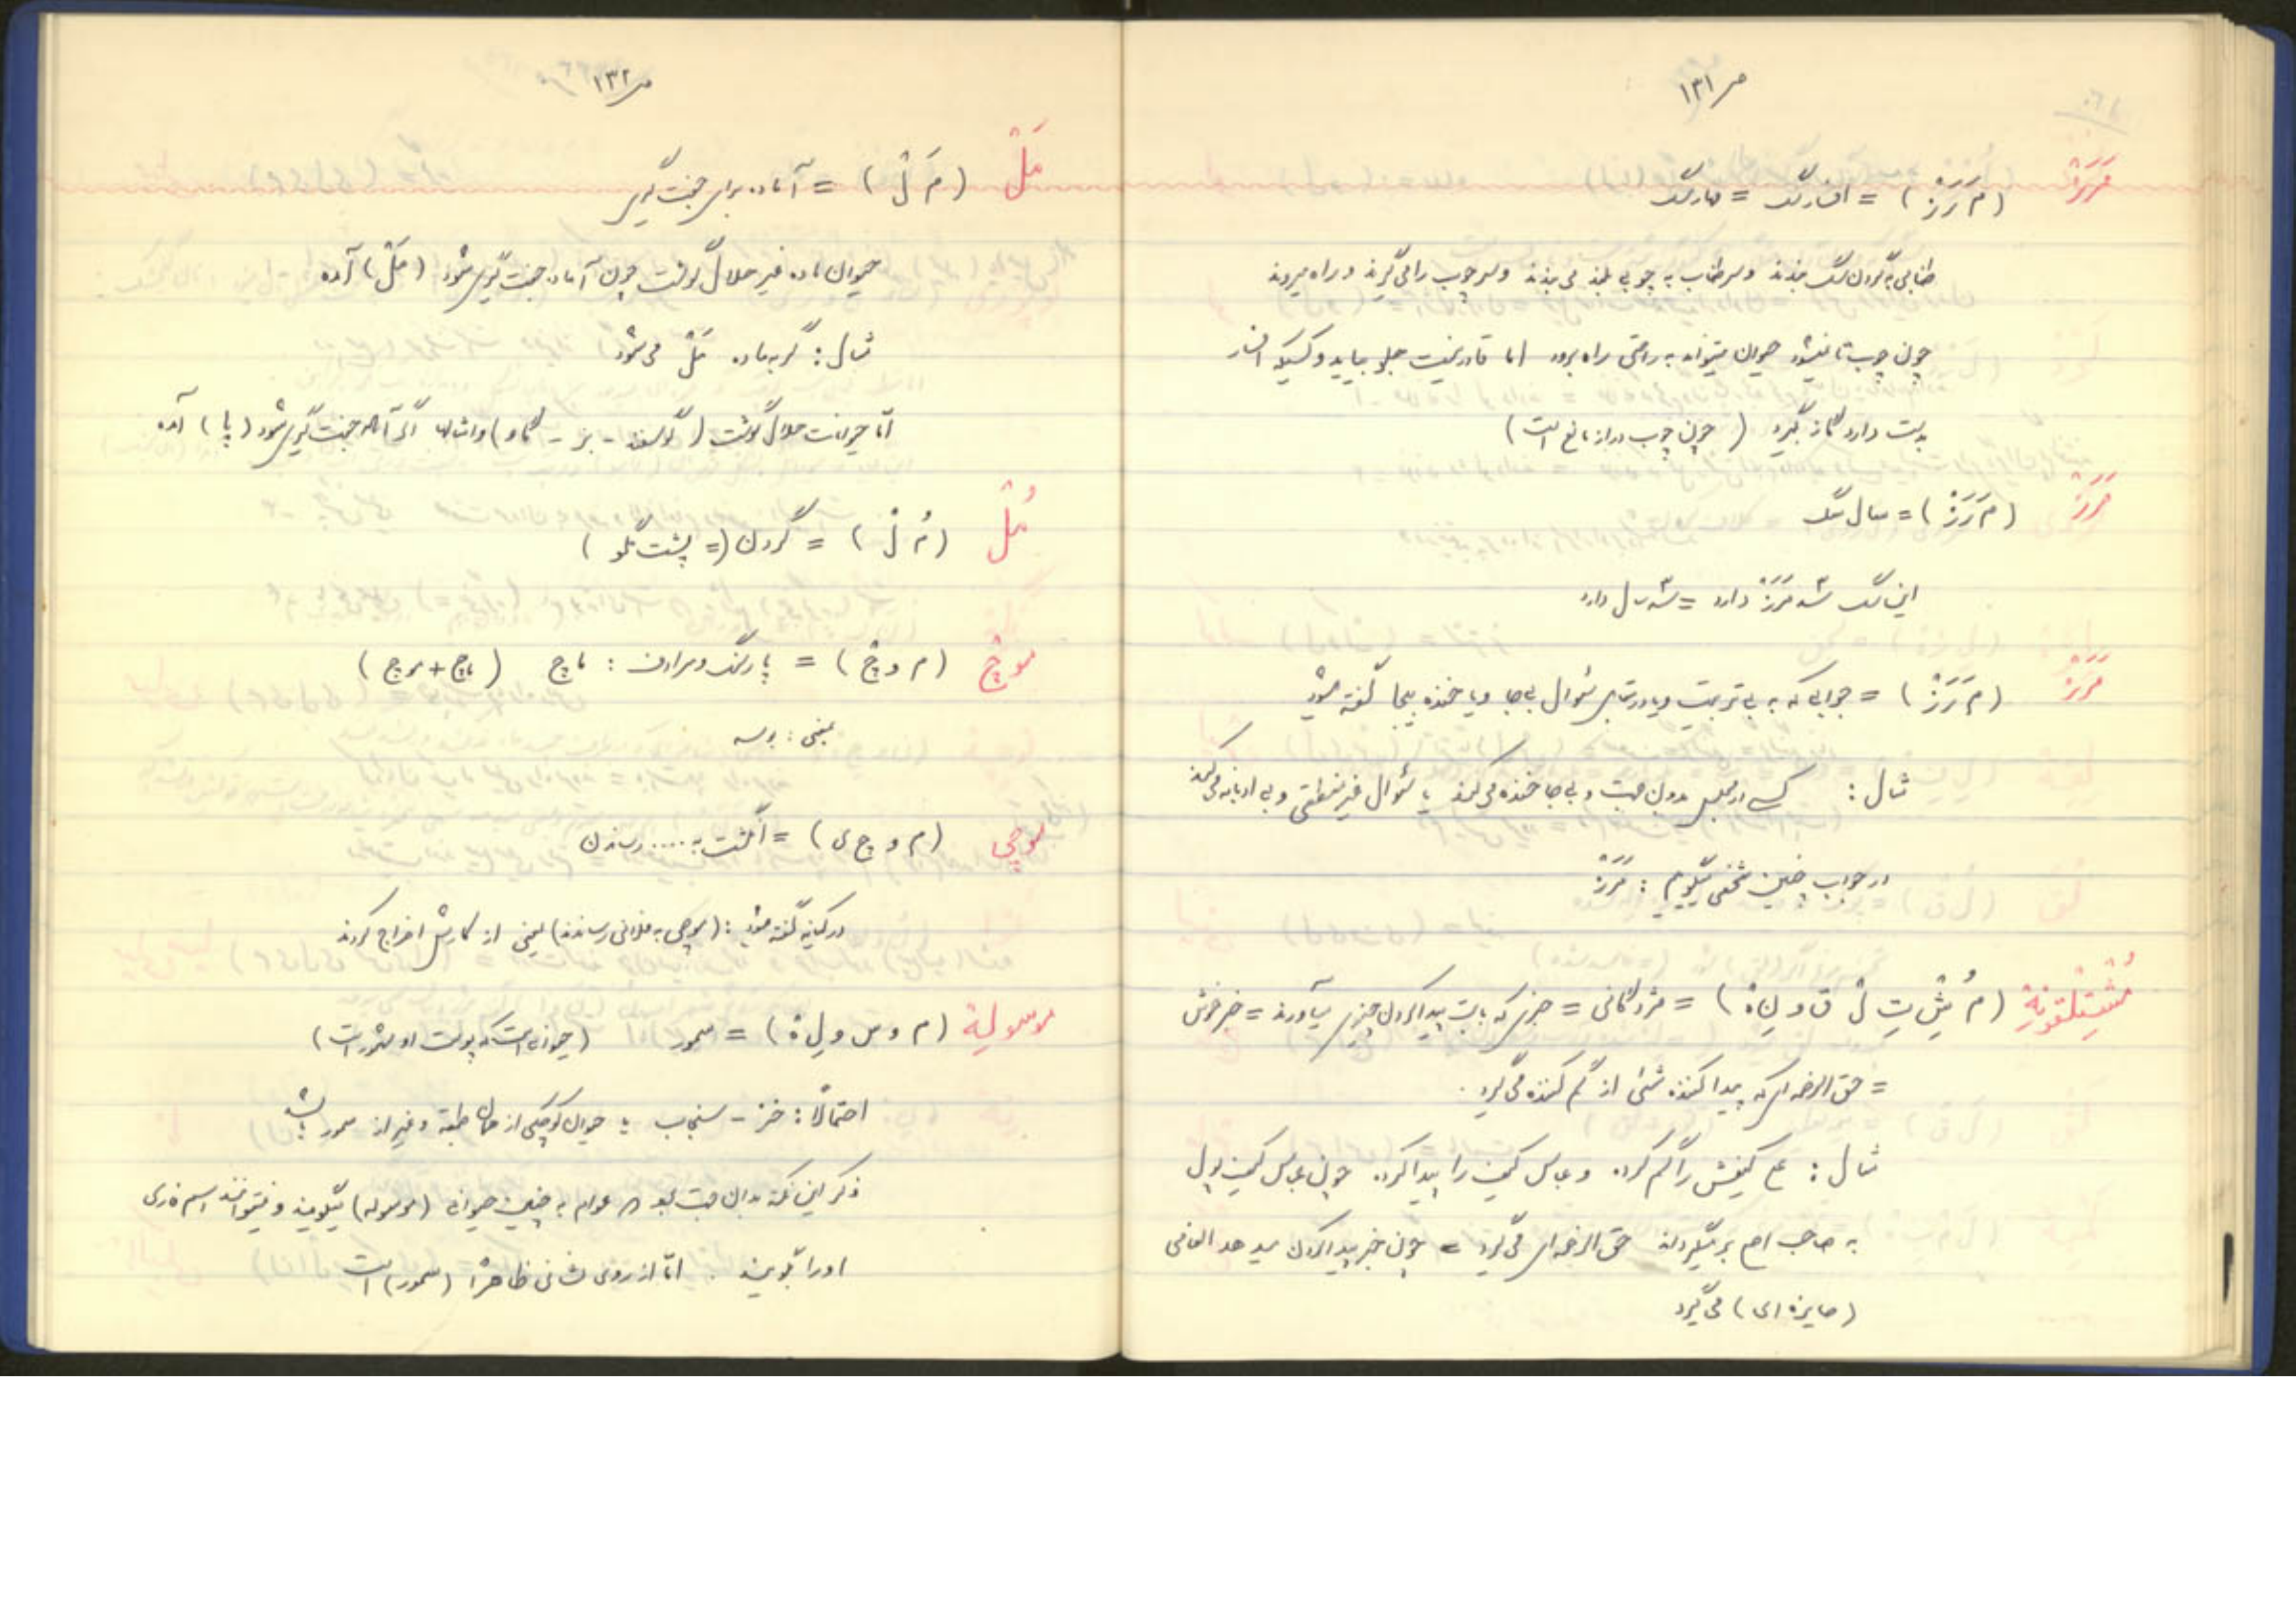 ص ۱۳۱
مَرَزْ (م َ ر َ زْ) = افسار سگ = مهار سگ
طنابی به گردن سگ می‌بندند و سر طناب به چوبی بلند می بندند و سر چوب را می گیرند و راه میروند
چون چوب تا نمیشود حیوان میتواند به راحتی راه برود اما قادر نیست جلو بیاید و کسیکه افسار
بدست دارد گاز بگیرد (چون چوب دراز مانع است)
مَرَزْ (م َ ر َ زْ) = سال سگ
این سگ سه مَرَزْ دارد = سه سال دارد
مَرَزْ (م َ ر َ زْ) = جوابی که به بی تربیت و یا در مقابل سئوال بی جا و یا خنده بیجا گفته میشود
مثال : کسی در مجلس بدون جهت و بی جا خنده می کند یا سئوال غیر منطقی و بی ادبانه می کند
در جواب چنین شخصی میگویم : مَرَزْ
مُشْتِلْقونِهْ (م ُ شْ تِ لْ ق و نِ هْ) = مژدگانی = خبری که بابت پیدا کردن چیزی میآورند = خبر خوش
= حق الزحمه ای که پیدا کننده شئی از گم کننده می گیرد .
مثال : علی کیفش را گم کرده و عباس کیف را پیدا کرده چون عباس کیف پول
به صاحب اصلی بر میگرداند حق الزحمه ای می گیرد = چون خبر پیدا کردن میدهد انعامی
(جایزه ای) می گیرد
ص ۱۳۲
مَلْ (م َ لْ) = آماده برای جفت گیری
حیوان ماده غیر حلال گوشت چون آماده جفت گیری شود (مَلْ) آمده
مثال : گربه ماده مَلْ می شود
امّا حیوانات حلال گوشت (گوسفند - بز - گاو) و امثالهم اگر آماده جفت گیری شود (پا) آمده
مُلْ (م ُ لْ) = گردن (= پشت گلو)
موچْ (م و چْ) = پارسنگ و مرادف : ماچ (ماچ + موچ)
یعنی : بوسه
موچی (م و چ ی) = انگشت به .... رساندن
در کنایه گفته میشود : (موچی به فلانی رساندند) یعنی از کارش اخراج کردند
موسولِهْ (م و س و لِ هْ) = سمور (حیوانی است که پوست او مشهور است)
احتمالاً : خز - سنجاب یا حیوان کوچکی از همان طبقه و غیر از سمور باشد
ذکر این نکته بدان جهت بود که عوام به چنین حیوانی (موسوله) میگویند و نمیتوانند اسم فارسی
او را بگویند . امّا از روی نشانی ظاهراً (سمور) است